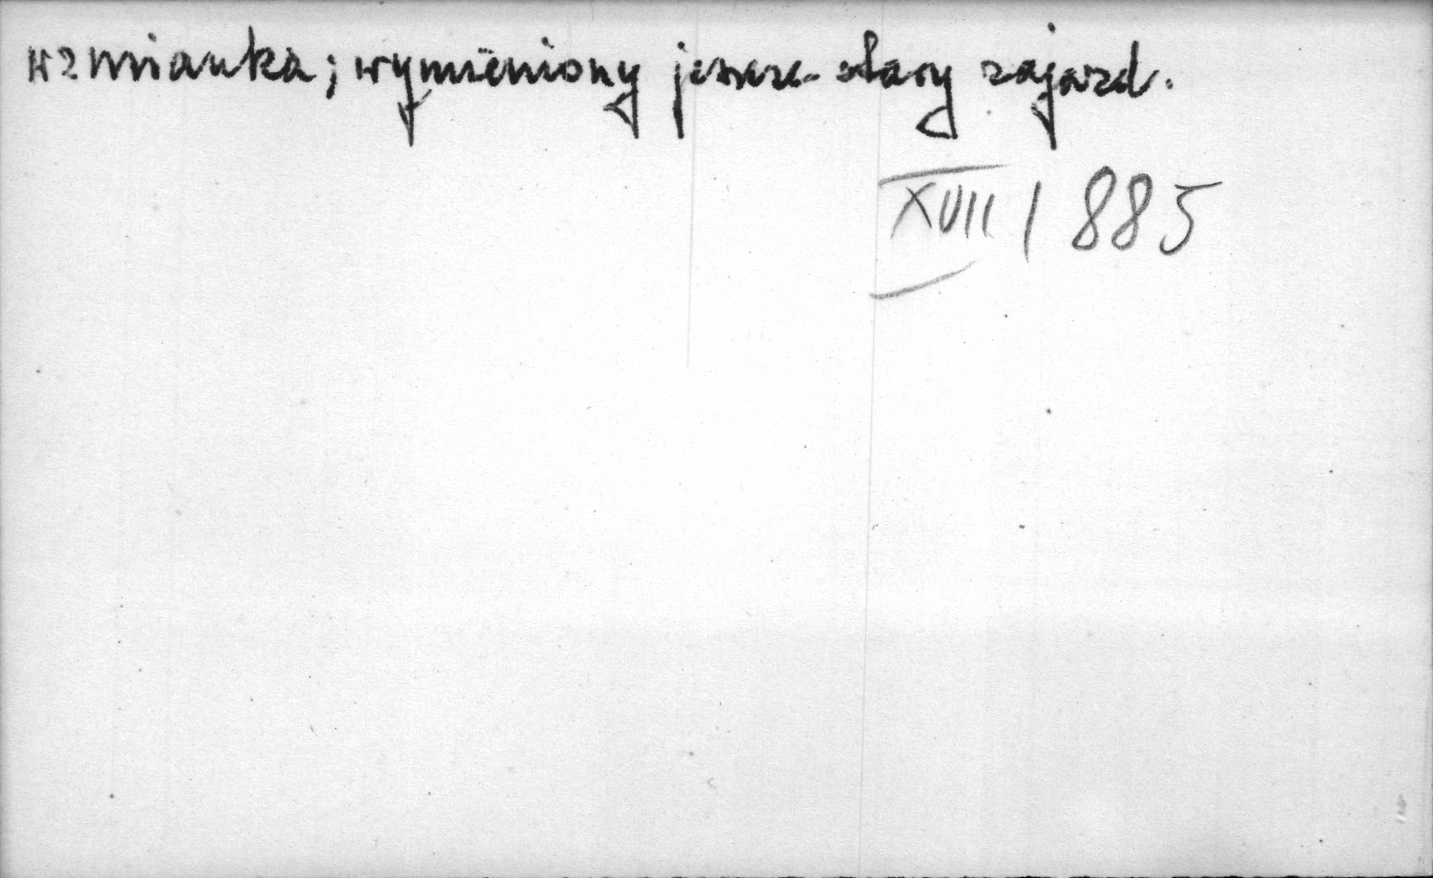 wzmianka; wymieniony jeszcze stary zajazd.
XVII / 885